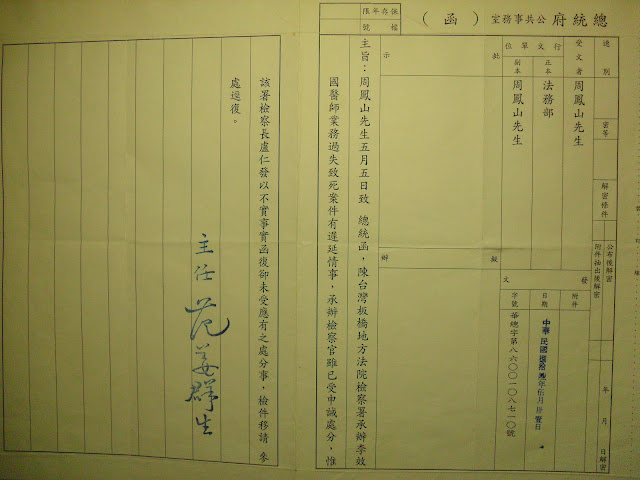 總統府公共事務室（函）
保存年限
檔號
速別
密等
解密條件
公布後解密
附件抽出後解密
年 月 日解密
受文者
周鳳山先生
行文單位
正本
法務部
副本
周鳳山先生
發文
附件
日期
中華民國
年伍月
日
字號
華總字第八六〇〇一〇八七一〇號
批示
擬辦
主旨：周鳳山先生五月五日致 總統函，陳台灣板橋地方法院檢察署承辦李妓
國醫師業務過失致死案件有遲延情事，承辦檢察官雖已受申誡處分，惟
該署檢察長盧仁發以不實事實函復卻未受應有之處分事，檢件移請 參
處逕復。
主任 范姜群生